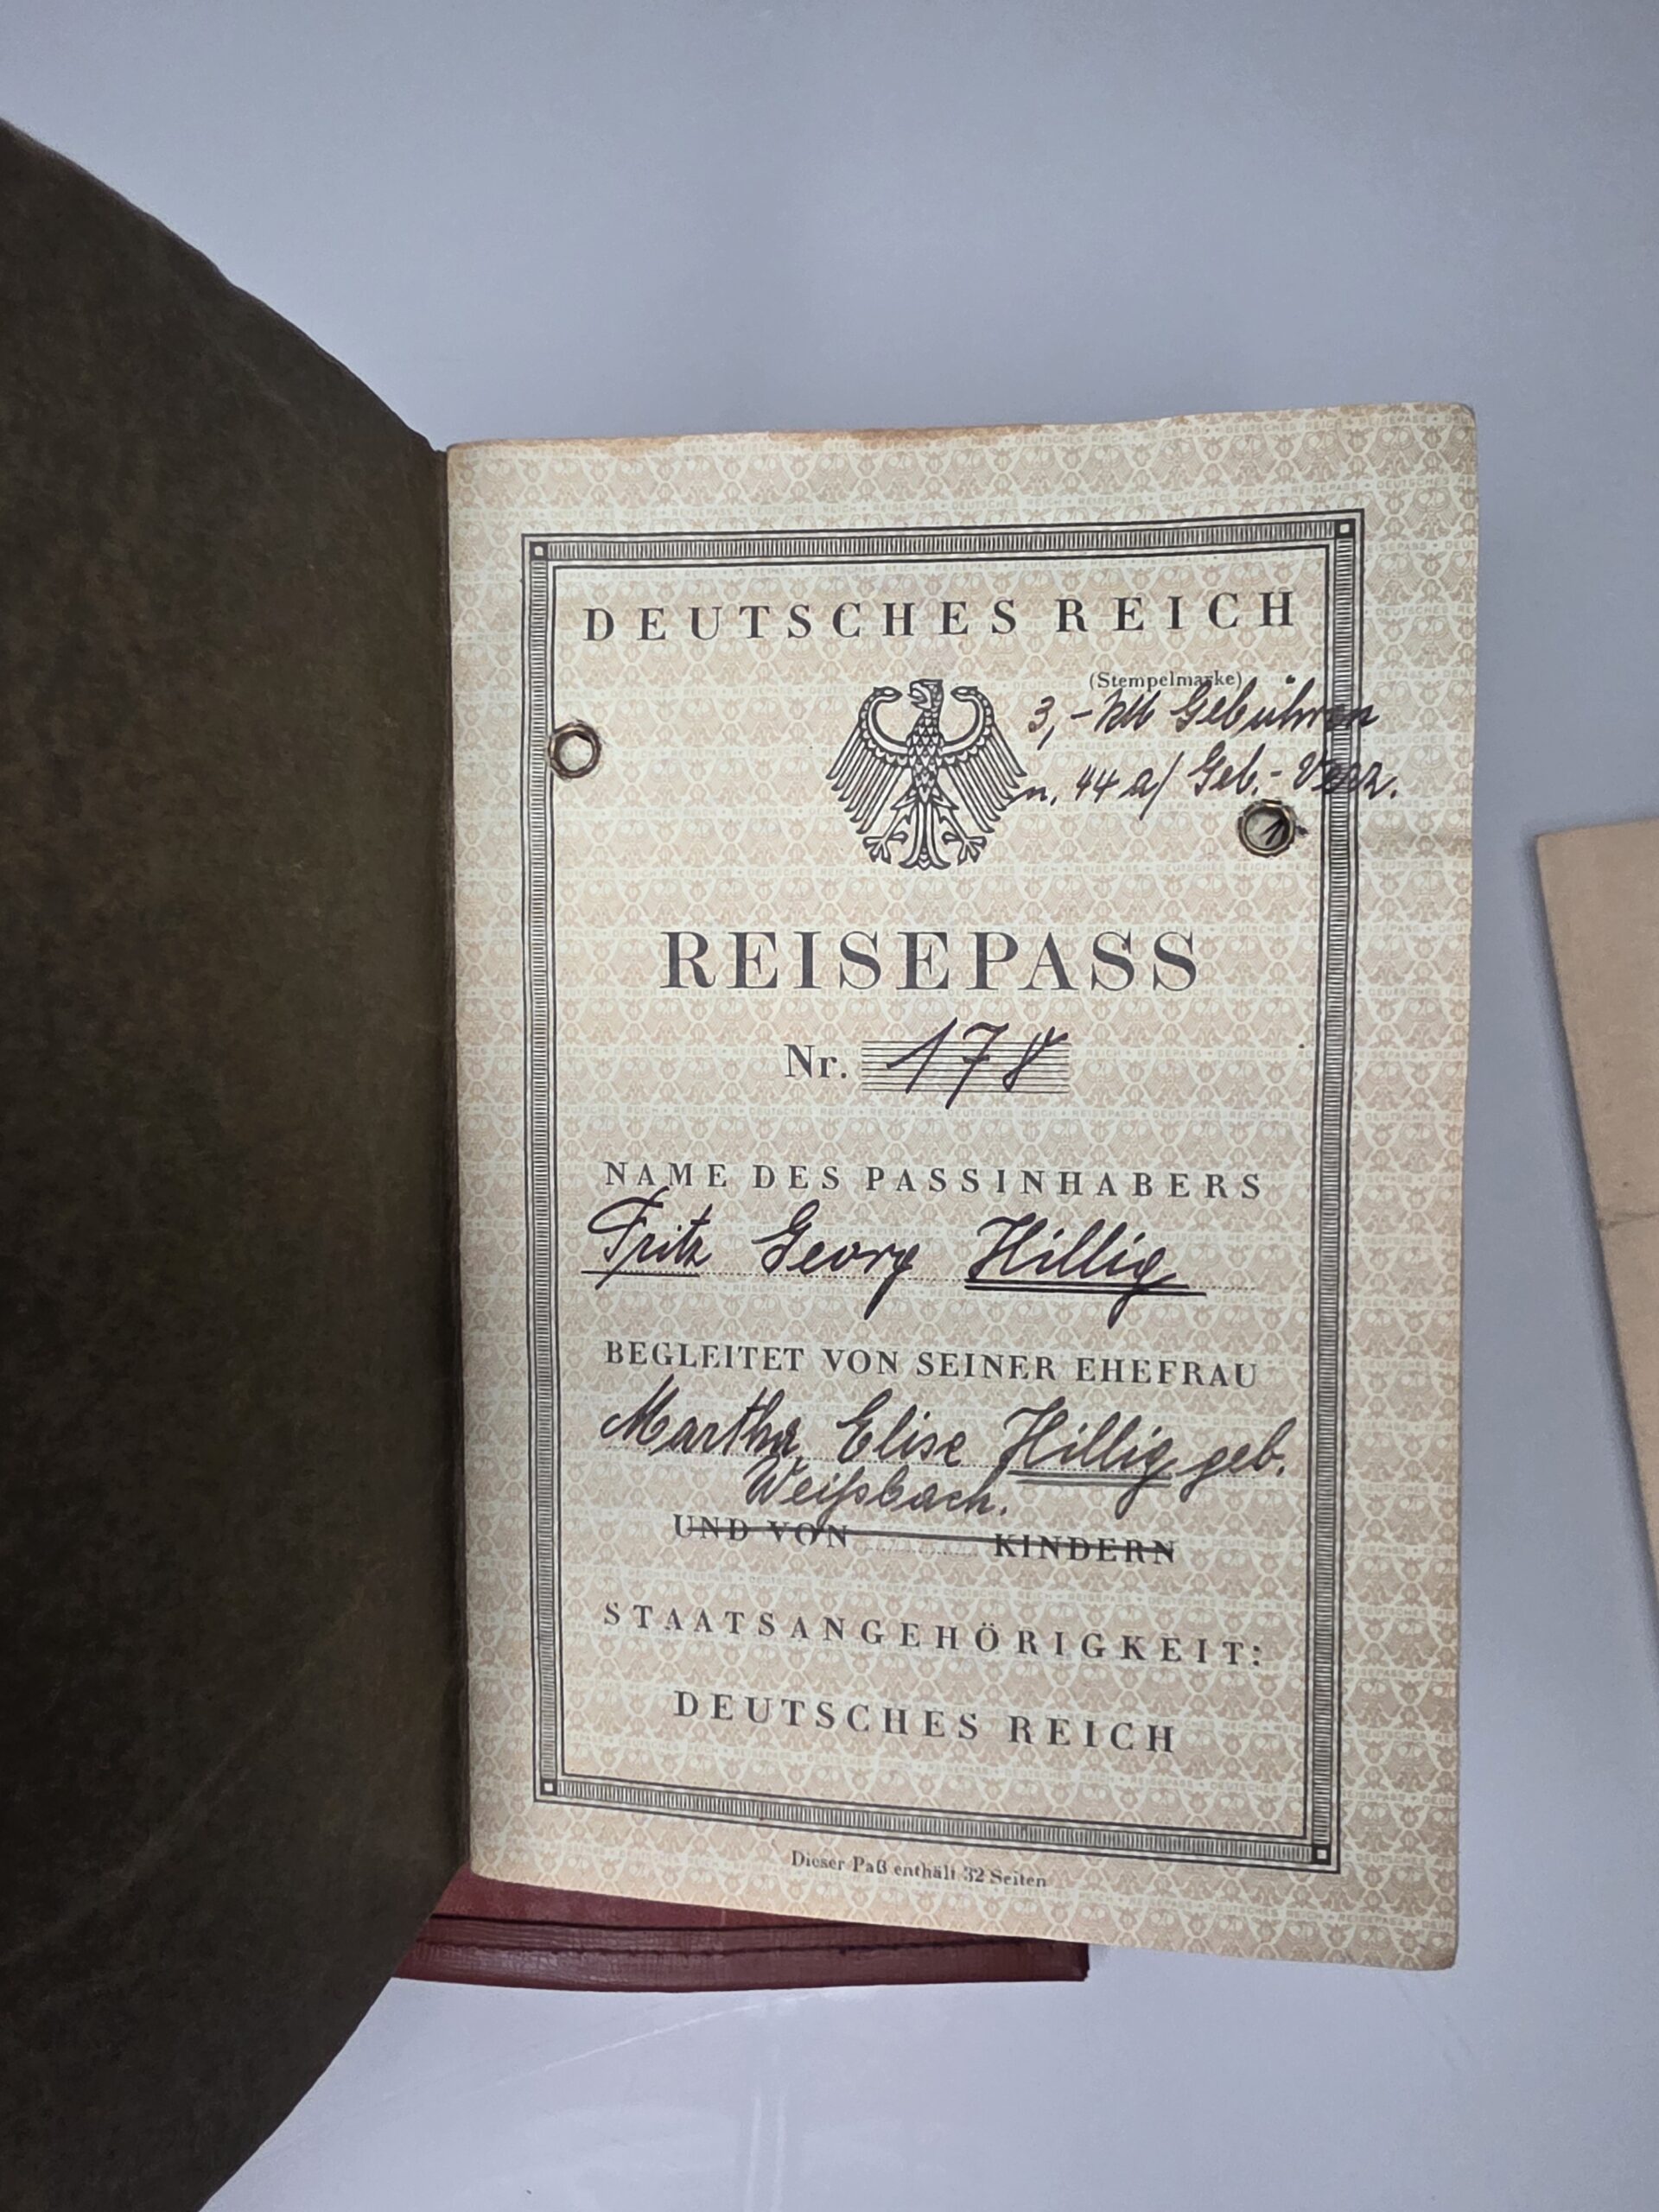 DEUTSCHES REICH
(Stempelmarke)
3,- RM Gebühren
n. 44 a/ Geb.-Verz.
REISEPASS
Nr. 178
NAME DES PASSINHABERS
Fritz Georg Hillig
BEGLEITET VON SEINER EHEFRAU
Martha Elise Hillig geb.
Weißbach.
UND VON KINDERN
STAATSANGEHÖRIGKEIT:
DEUTSCHES REICH
Dieser Paß enthält 32 Seiten